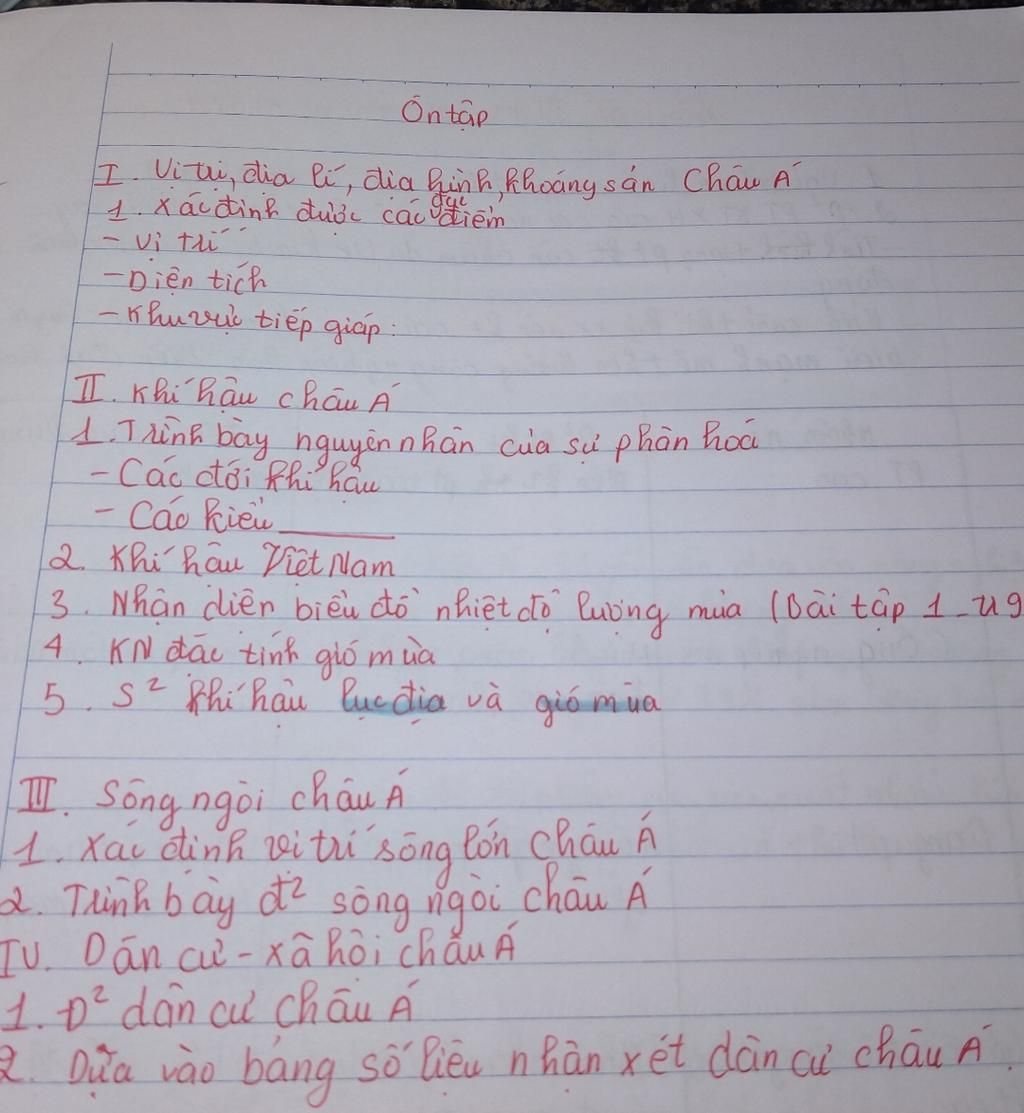 Ôn tập
I. Vị trí, địa lí, địa hình, khoáng sản Châu Á
1. Xác định được các đặc điểm
- Vị trí
- Diện tích
- Khu vực tiếp giáp:
II. Khí hậu châu Á
1. Trình bày nguyên nhân của sự phân hoá
- Các đới khí hậu
- Các kiểu ______
2. Khí hậu Việt Nam
3. Nhận diện biểu đồ nhiệt độ lượng mưa (Bài tập 1 -
4. KN đặc tính gió mùa
5. S² khí hậu lục địa và gió mùa
III. Sông ngòi châu Á
1. Xác định vị trí sông lớn Châu Á
2. Trình bày đ² sông ngòi châu Á
IV. Dân cư - xã hội châu Á
1. Đ² dân cư Châu Á
2. Dựa vào bảng số liệu nhận xét dân cư châu Á.